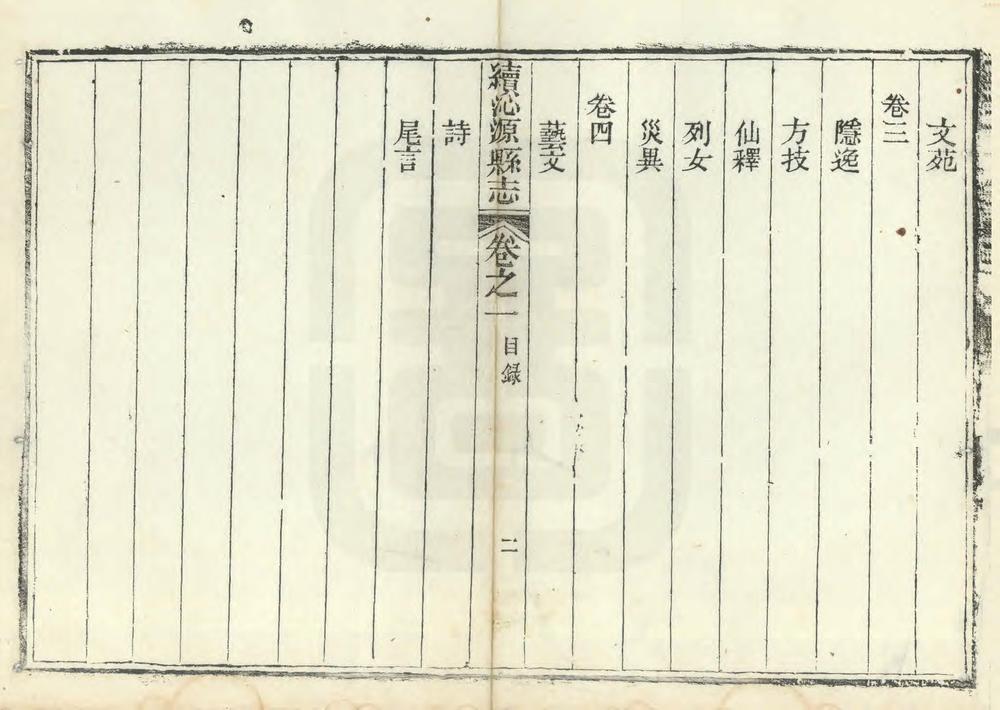 文苑
卷三
隱逸
方技
仙釋
列女
災異
卷四
藝文
續沁源縣志 卷之一 目録 二
詩
尾言